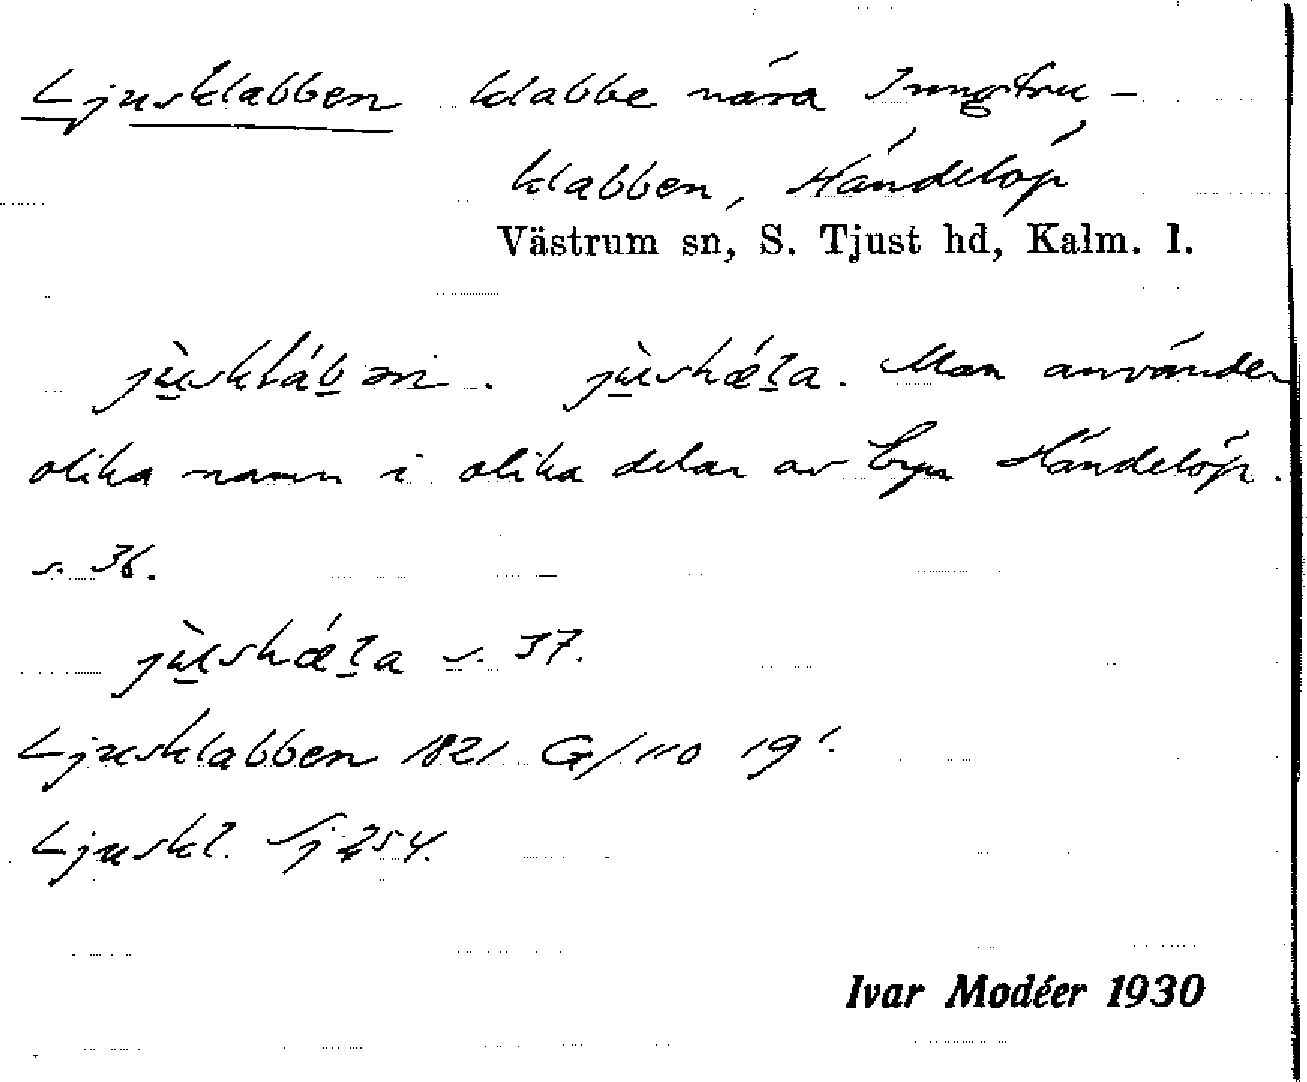 Ljusklabben klabbe nära Jungfru-
klabben, Händelöp
Västrum sn, S. Tjust hd, Kalm. l.
Man använder
olika namn i olika delar av byn Händelöp.
s. 36.
s. 37.
Ljusklabben 1821 G/110 19'.
Ljuskl. Sj 254.
Ivar Modéer 1930